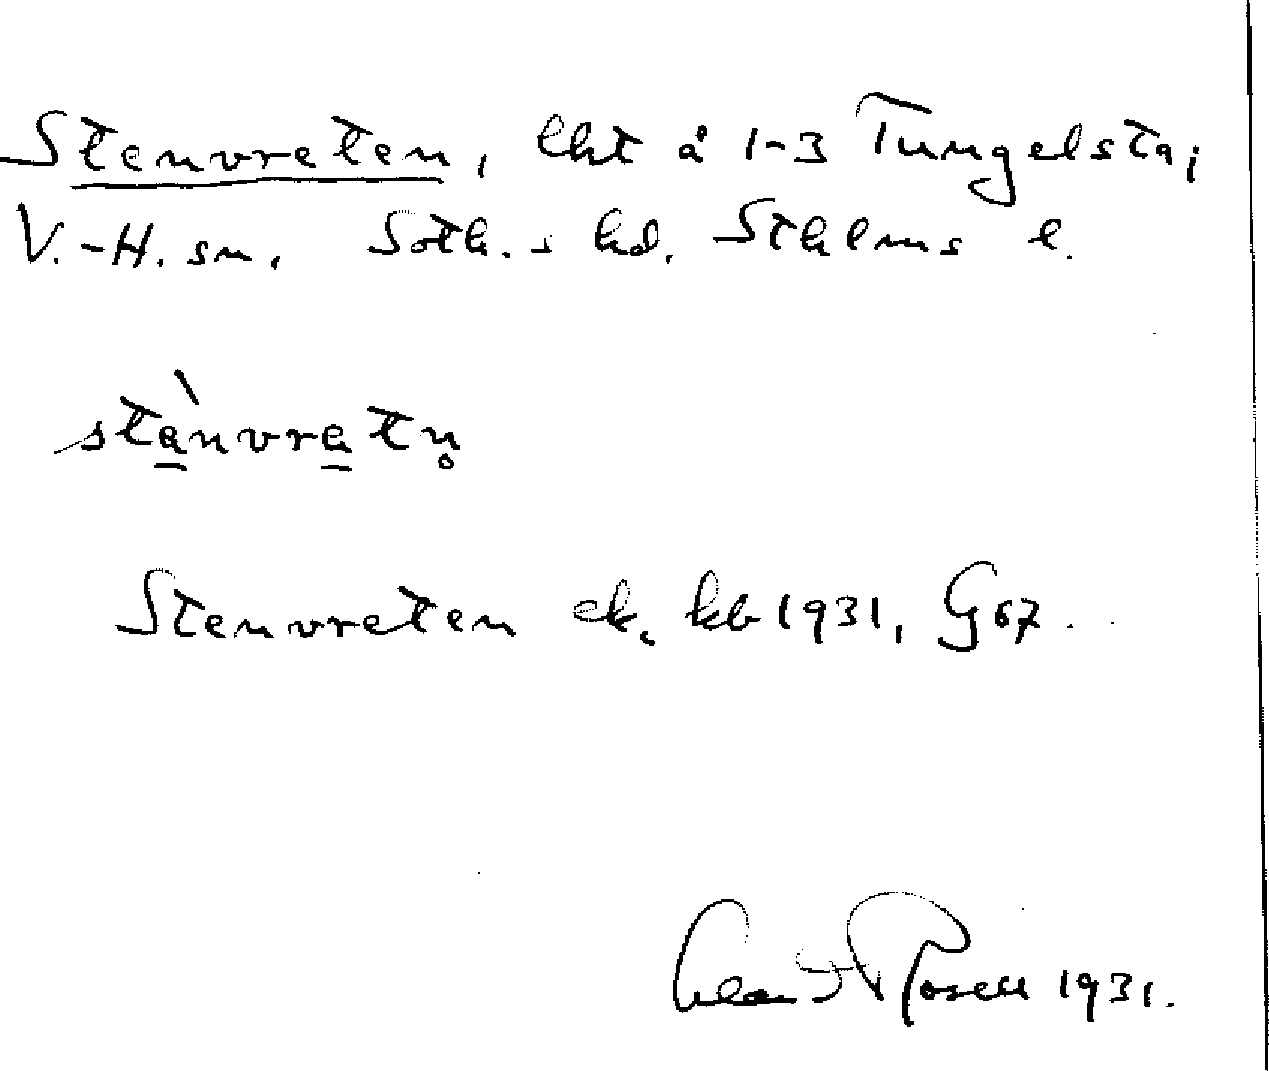 Stenvreten, lht å 1-3 Tungelsta,
V.-H. sn. Soth.s hd. Sthlms l.
stànvratn̥
Stenvreten ek. kb 1931, G 67.
Rosell 1931.